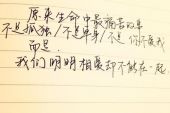 原来生命中最痛苦的事
不是孤独/不是单身/不是你不爱我
而是
我们明明相爱却不能在一起